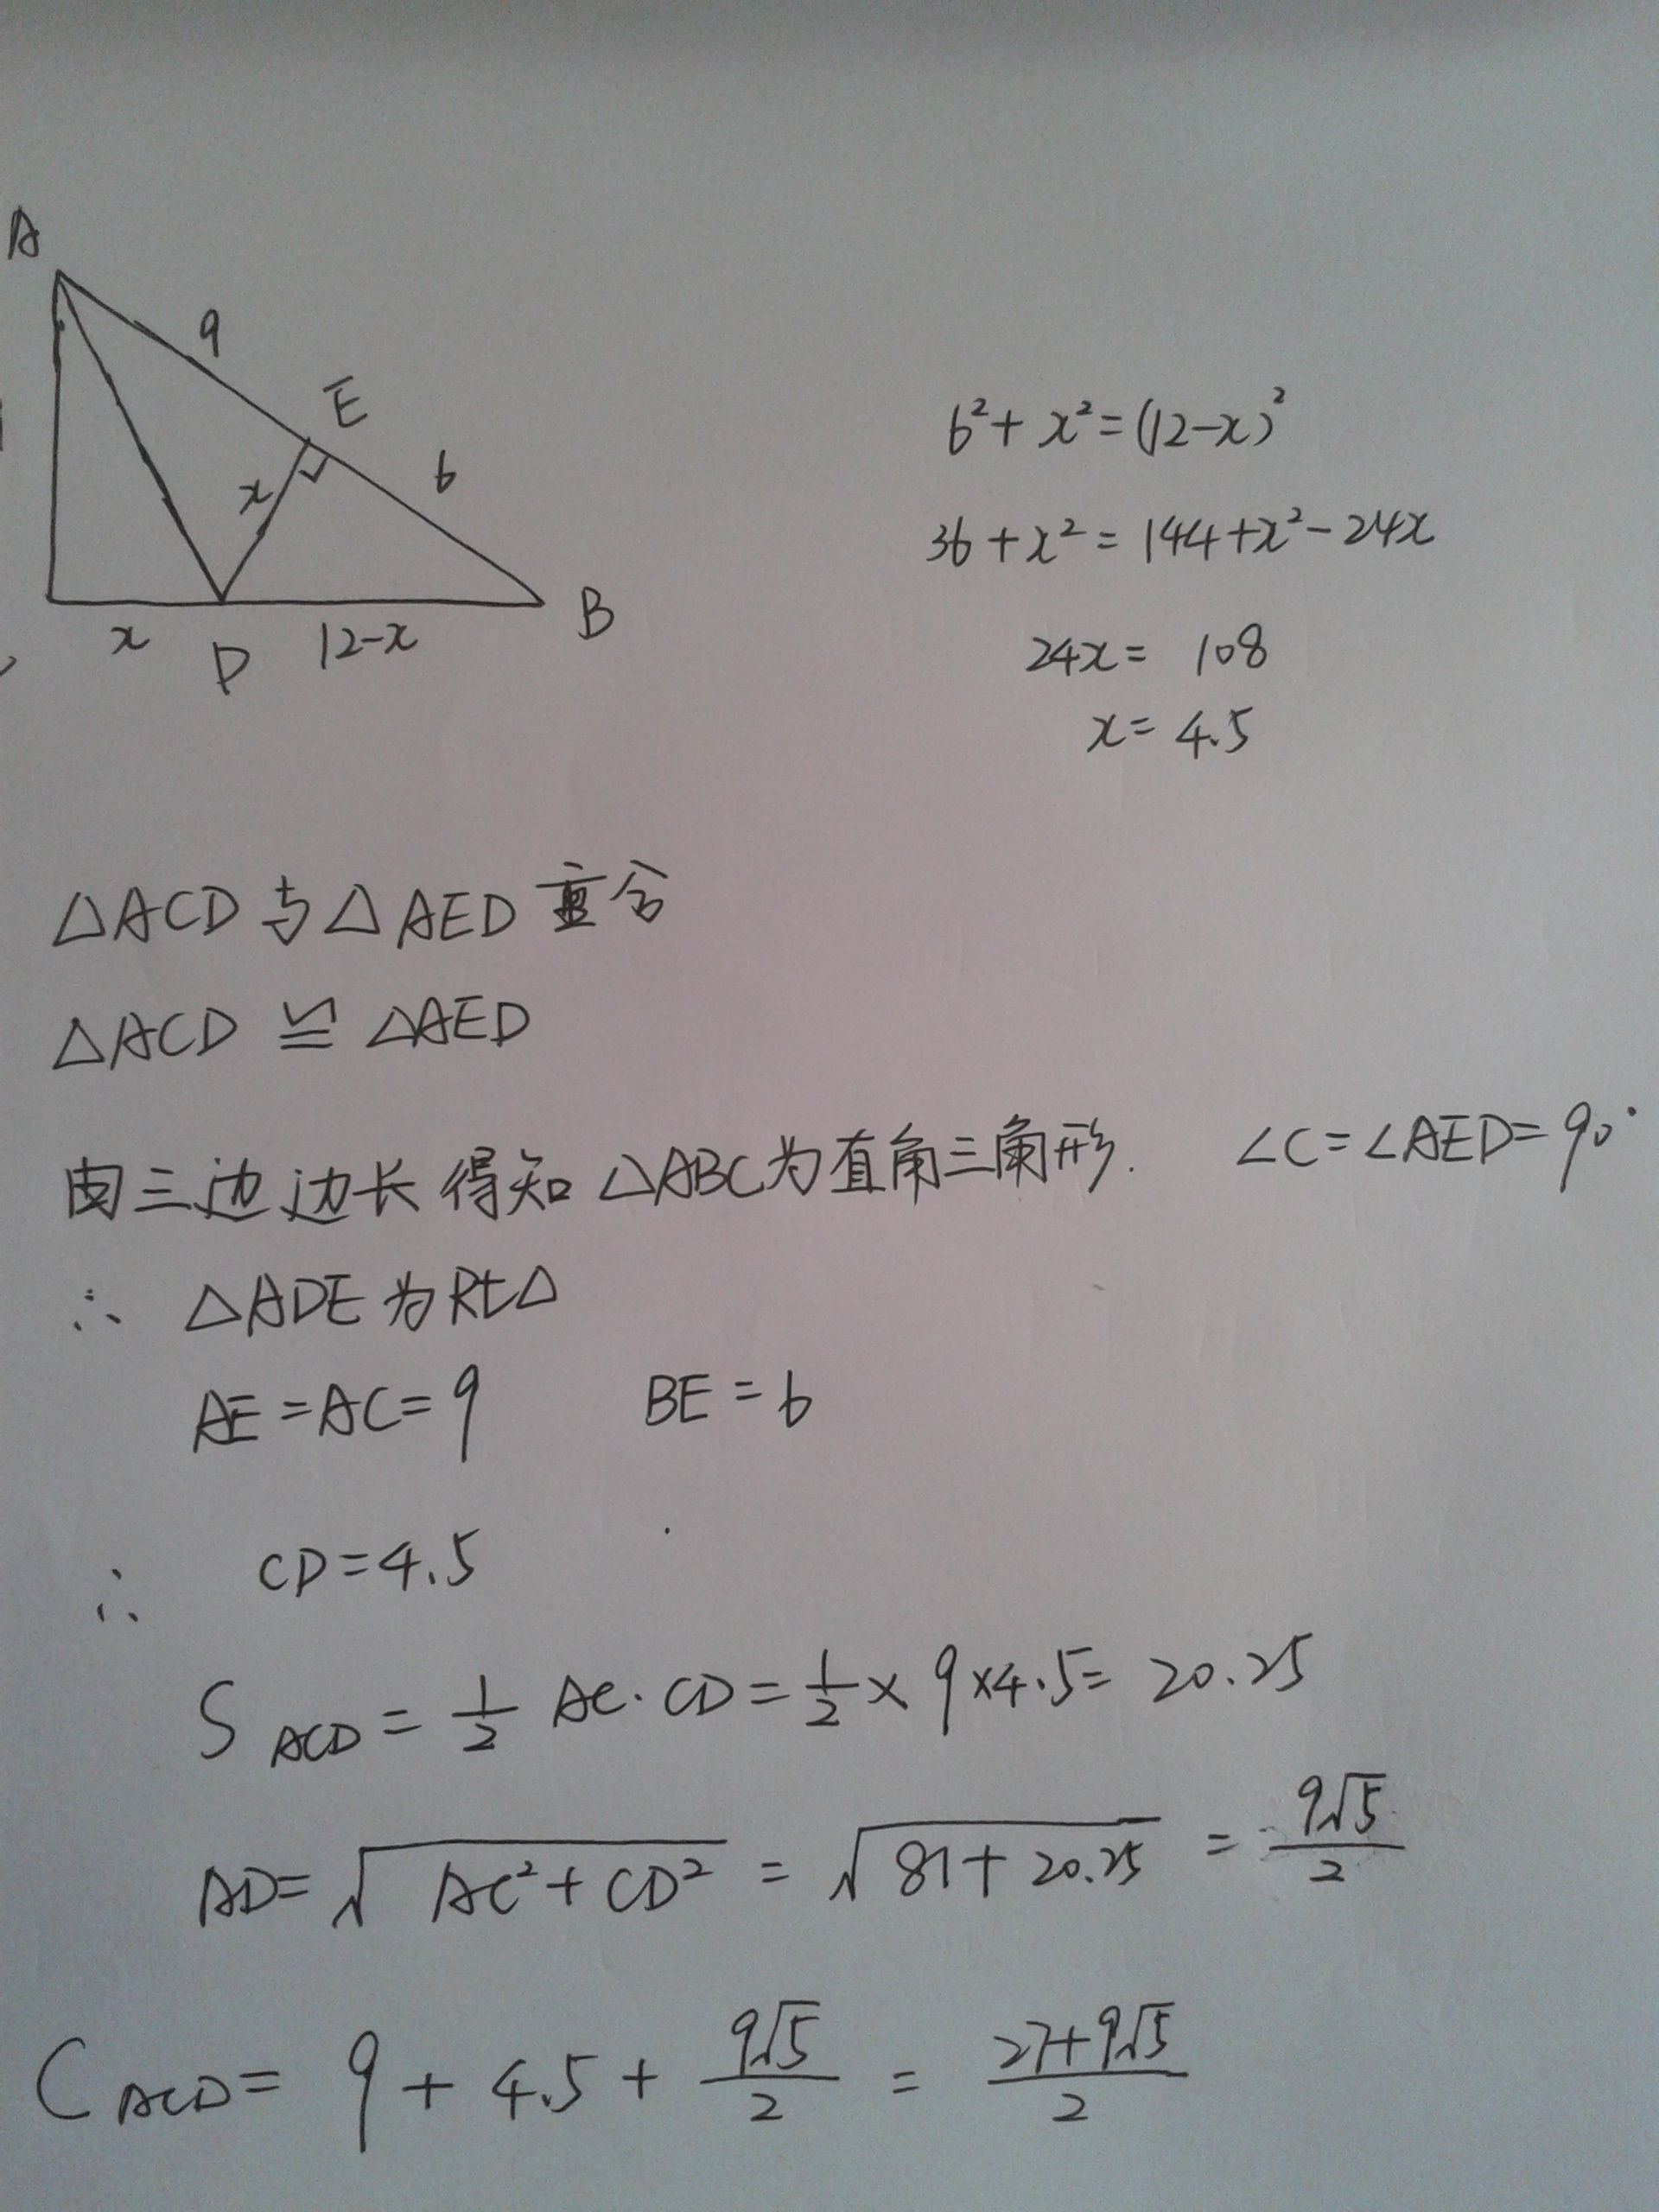 A
9
E
6
x
x
D
12-x
B
6²+x²=(12-x)²
36+x²=144+x²-24x
24x= 108
x=4.5
△ACD与△AED重合
△ACD ≌ △AED
由三边边长得知△ABC为直角三角形. ∠C=∠AED=90°
∴ △ADE为Rt△
AE=AC=9 BE=6
∴ CD=4.5
S ACD = 1/2 AC·CD = 1/2 × 9×4.5= 20.25
AD= √(AC²+CD²) = √(81+20.25) = 9√5/2
C ACD= 9+4.5+ 9√5/2 = 27+9√5/2